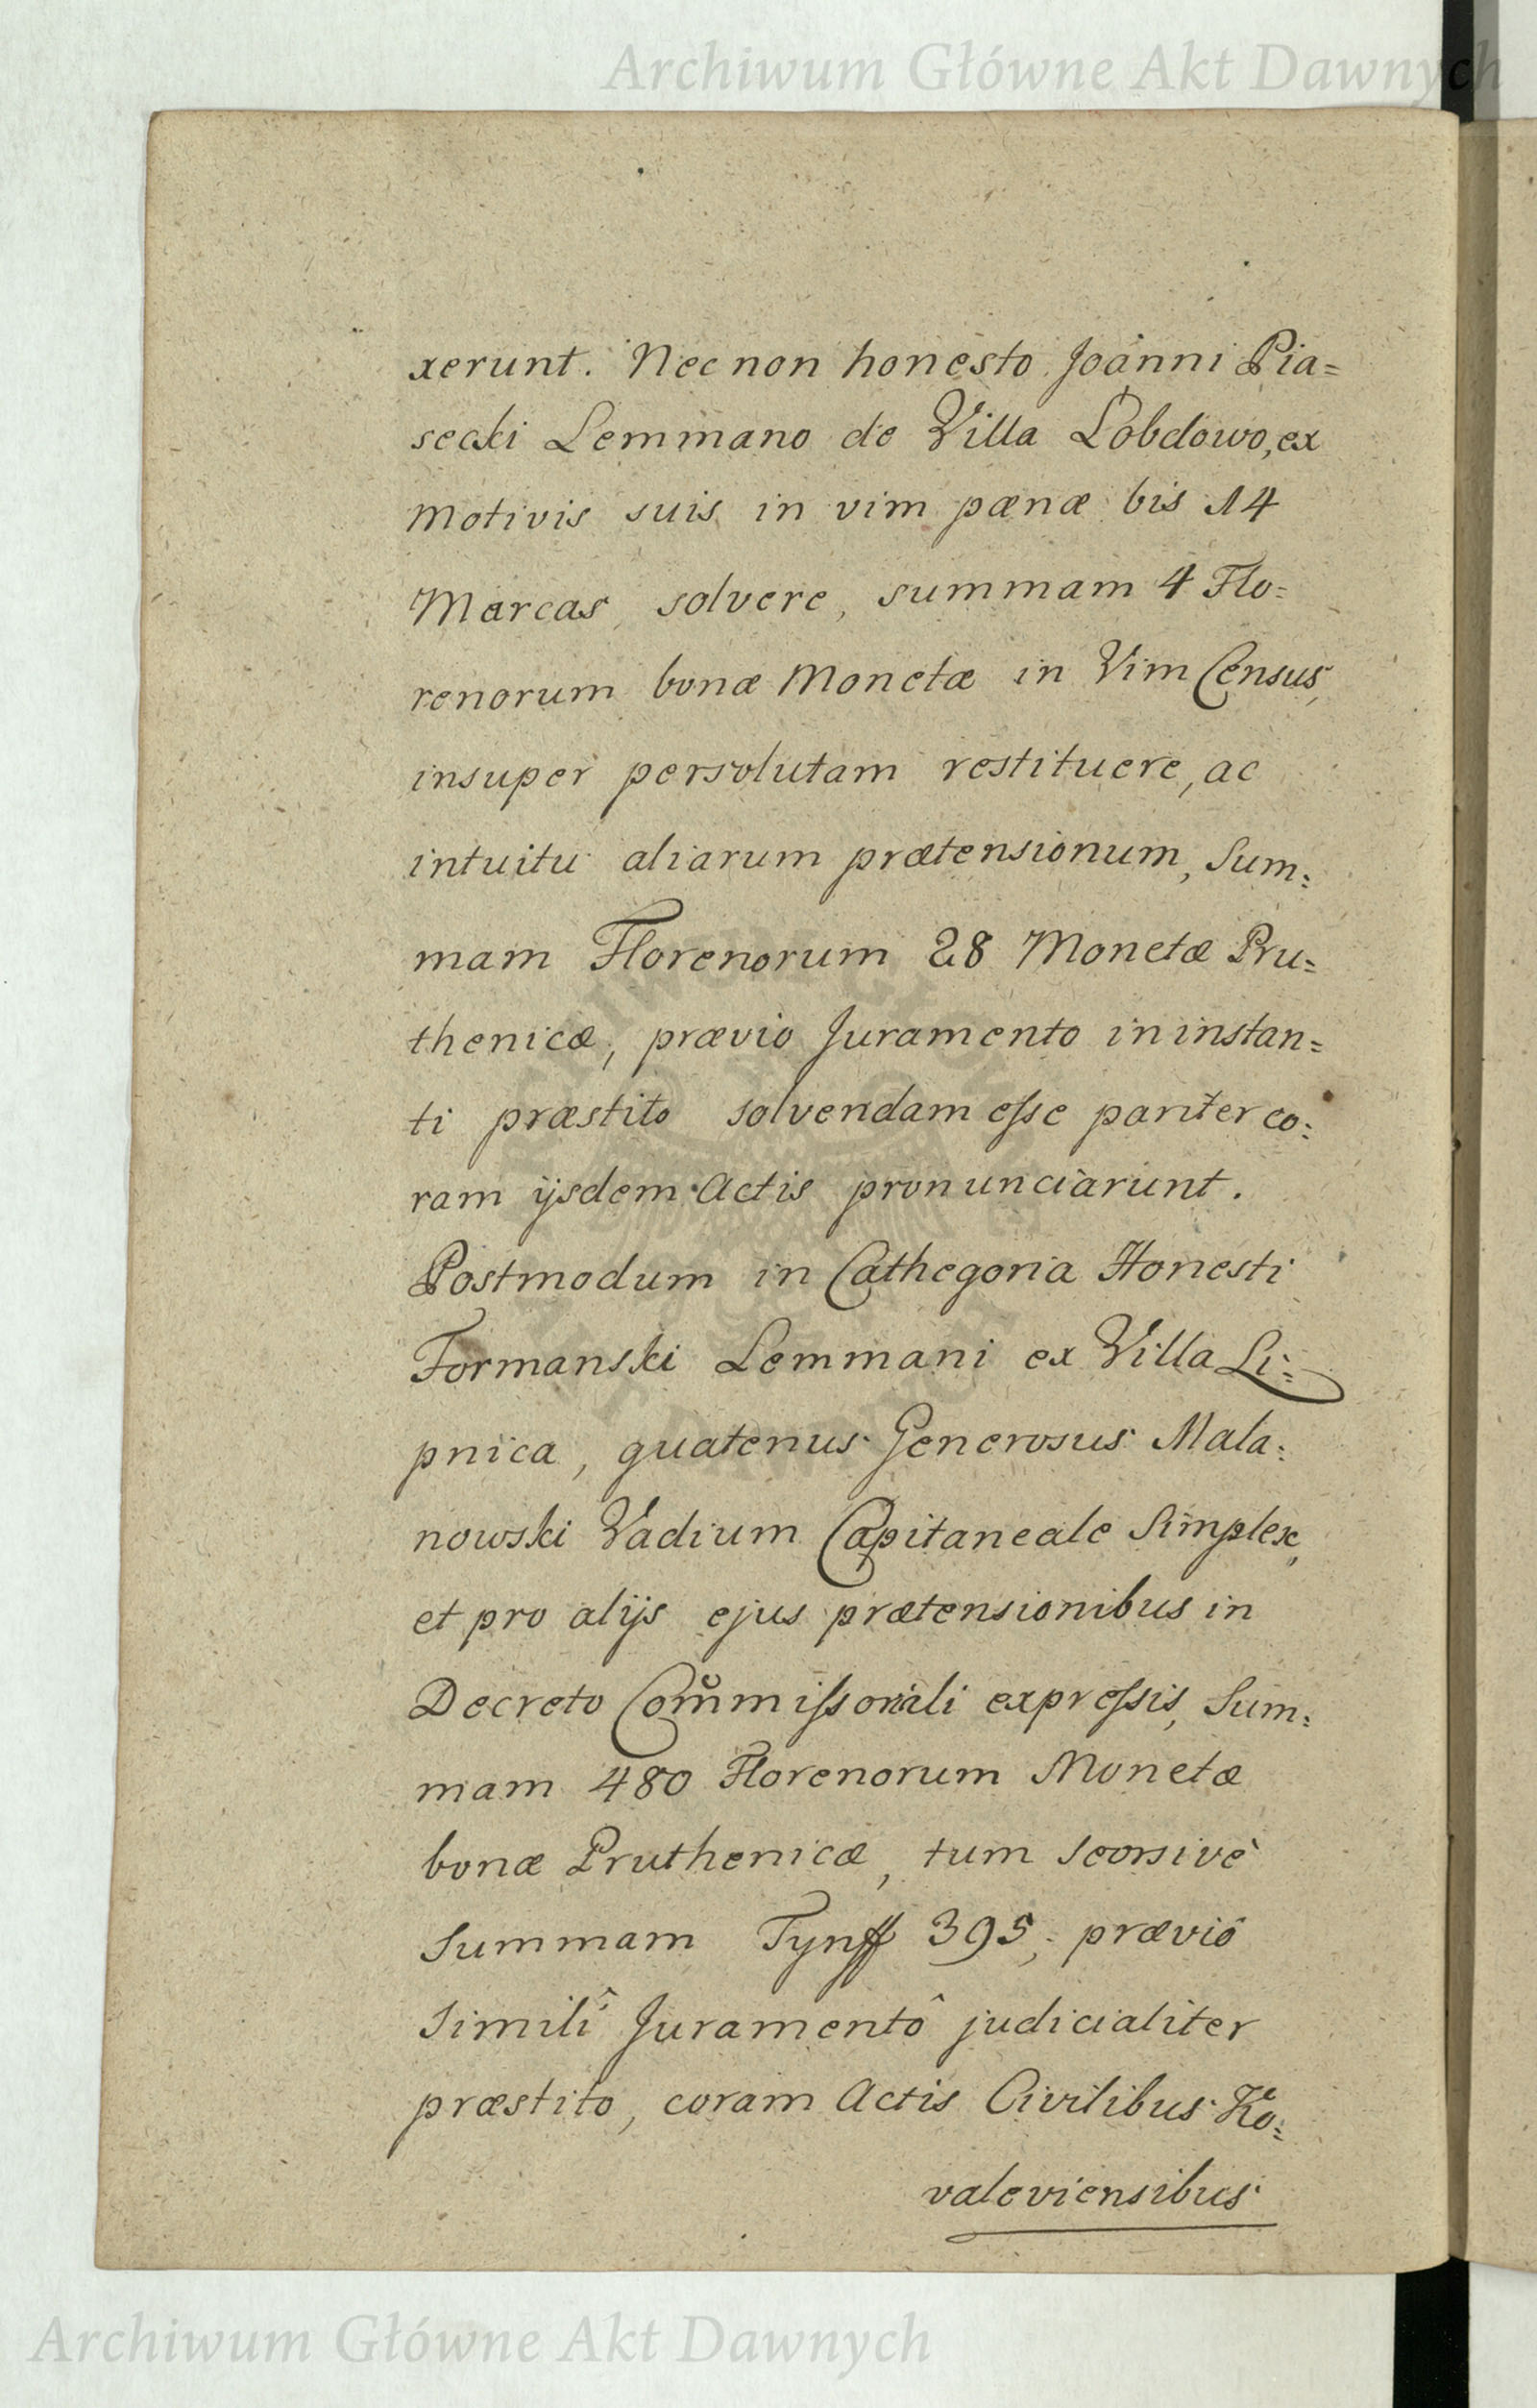 Archiwum Główne Akt Dawnych
xerunt. Nec non honesto Joanni Pia=
secki Lemmano de Villa Łobdowo, ex
Motivis suis in vim pænæ bis 14
Marcas solvere, summam 4 Flo=
renorum bonæ Monetæ in Vim Census,
insuper persolutam restituere, ac
intuitu aliarum prætensionum, Sum=
mam Florenorum 28 Monetæ Pru=
thenicæ, prævio Juramento in instan=
ti præstito solvendam eſse pariter co=
ram ijsdem Actis pronunciarunt.
Postmodum in Cathegoria Honesti
Formanski Lemmani ex Villa Li=
pnica, quatenus Generosus Mala=
nowski Vadium Capitaneale Simplex,
et pro alijs ejus prætensionibus in
Decreto Com̃miſsoriali expreſsis, Sum=
mam 480 Florenorum Monetæ
bonæ Pruthenicæ, tum seorsivè
Summam Tynff 395, præviô
Similî Juramentô judicialiter
præstito, coram Actis Civilibus Ko=
valeviensibus
Archiwum Główne Akt Dawnych